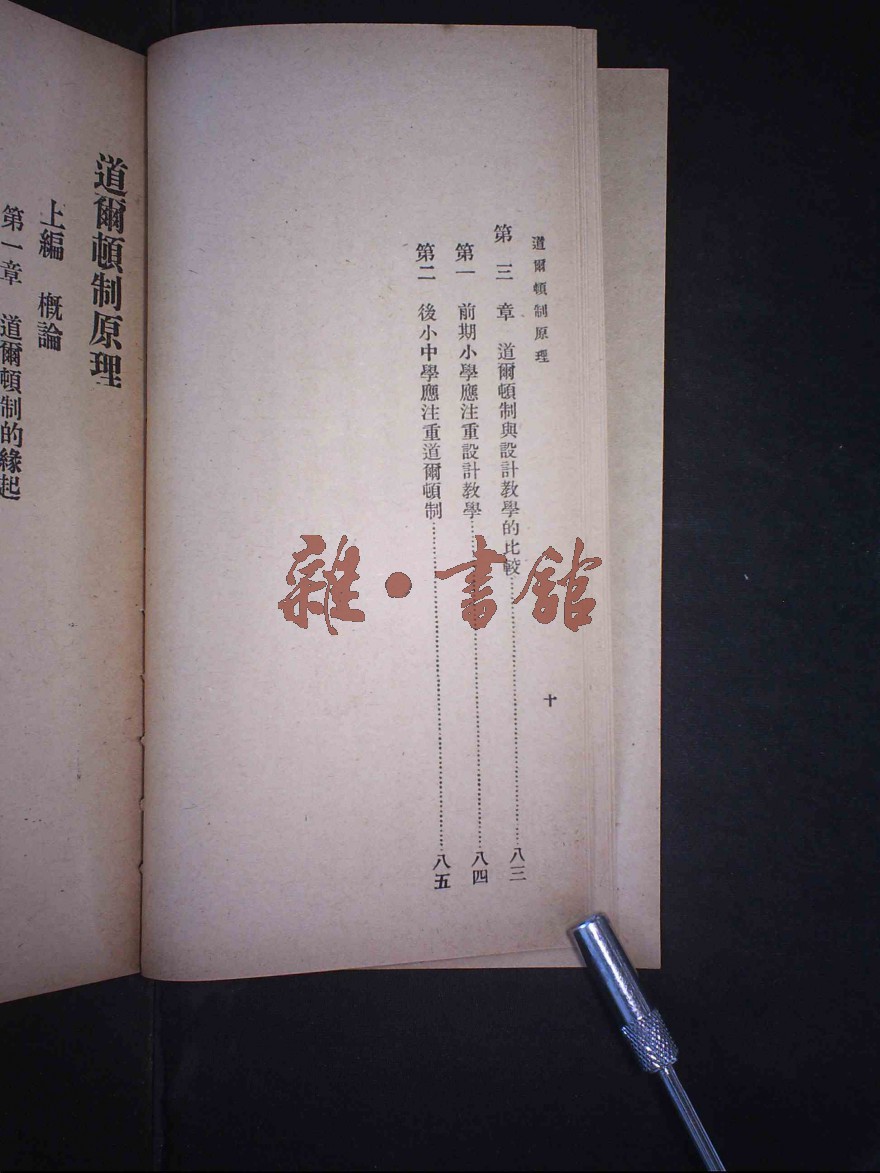 道爾頓制原理
十
第三章 道爾頓制與設計教學的比較……八三
第一 前期小學應注重設計教學……八四
第二 後小中學應注重道爾頓制……八五
道爾頓制原理
上編 概論
第一章 道爾頓制的緣起
雜·書館